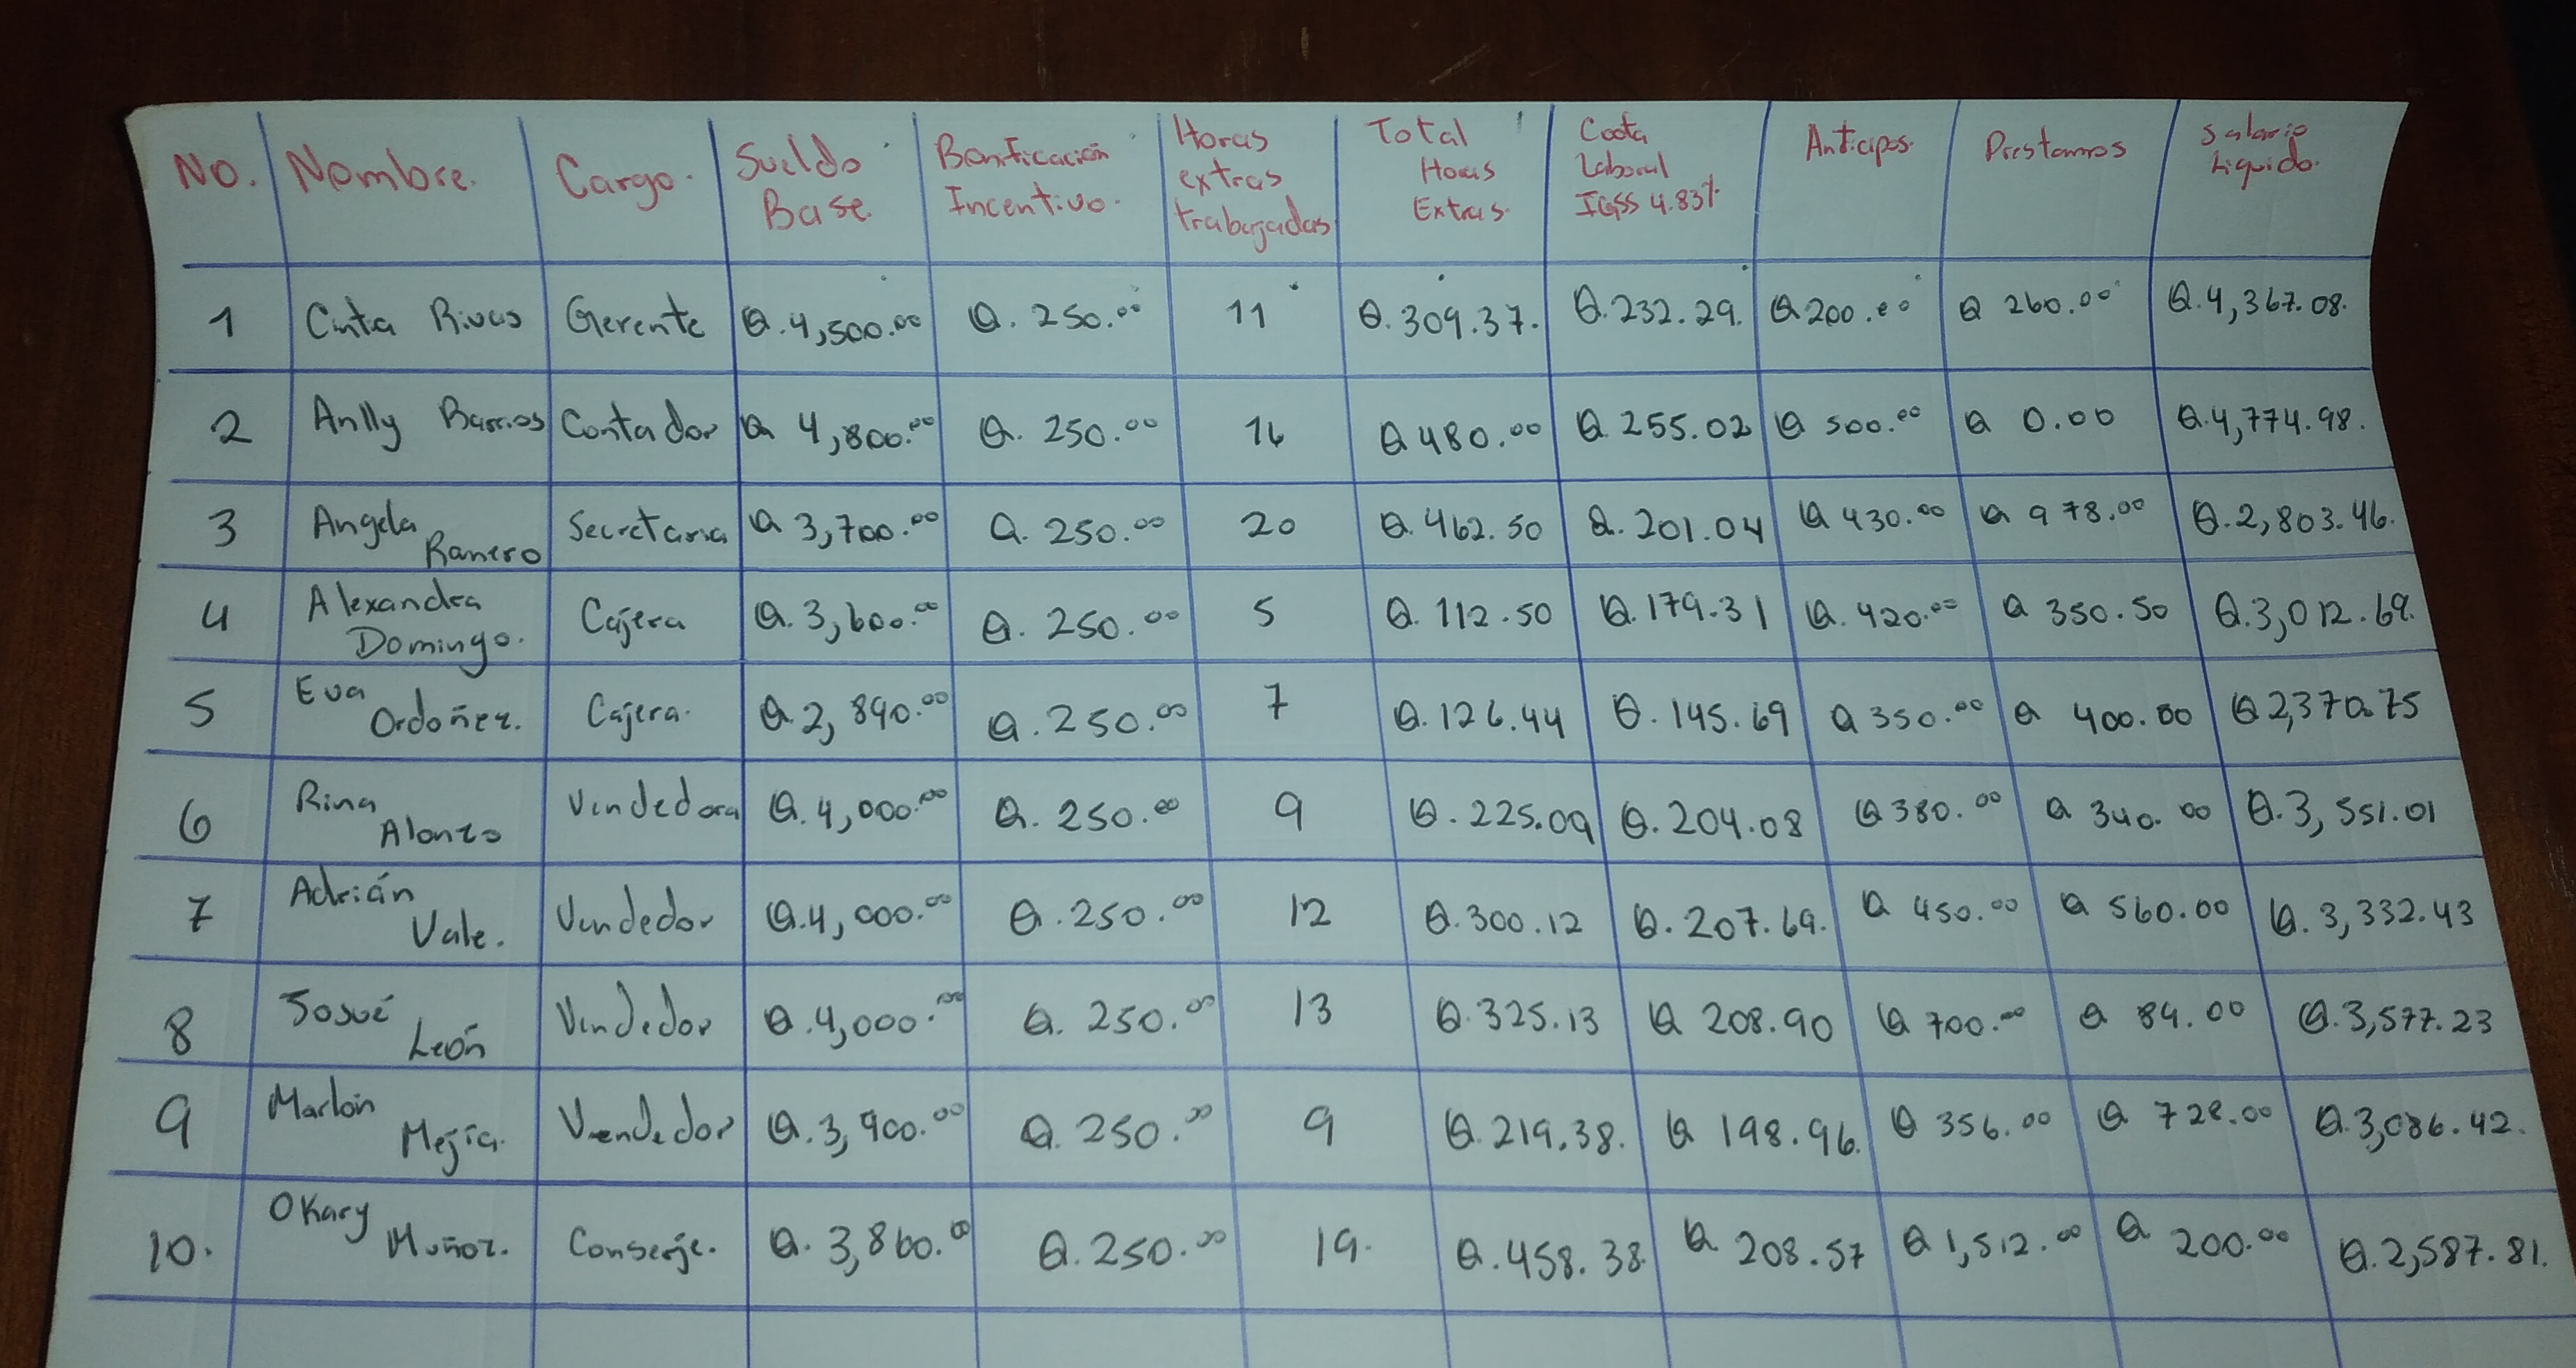 No. Nombre. Cargo. Sueldo Base. Bonificación Incentivo. Horas extras trabajadas Total Horas Extras. Cuota Laboral IGSS 4.83% Anticipos. Prestamos Salario Liquido.
1 Cinta Rivas Gerente Q.4,500.00 Q. 250.00 11 Q.309.37. Q.232.29. Q200.00 Q 260.00 Q.4,367.08.
2 Anlly Barrios Contador Q 4,800.00 Q. 250.00 16 Q480.00 Q255.02 Q 500.00 Q 0.00 Q.4,774.98.
3 Angela Ranero Secretaria Q 3,700.00 Q. 250.00 20 Q.462.50 Q.201.04 Q 430.00 Q 978.00 Q.2,803.46.
4 Alexandra Domingo. Cajera Q.3,600.00 Q. 250.00 5 Q.112.50 Q.179.31 Q.420.00 Q 350.50 Q.3,012.69.
5 Eva Ordoñez. Cajera. Q.2,890.00 Q.250.00 7 Q.126.44 Q.145.69 Q350.00 Q 400.00 Q2,370.75
6 Rina Alonzo Vendedora Q.4,000.00 Q. 250.00 9 Q.225.09 Q.204.08 Q380.00 Q 340.00 Q.3,551.01
7 Adrián Vale. Vendedor Q.4,000.00 Q.250.00 12 Q.300.12 Q.207.69. Q 450.00 Q 560.00 Q.3,332.43
8 Josué León Vendedor Q.4,000.00 Q. 250.00 13 Q.325.13 Q 208.90 Q 700.00 Q 84.00 Q.3,577.23
9 Marlon Mejía. Vendedor Q.3,900.00 Q. 250.00 9 Q.219.38. Q 198.96. Q 356.00 Q 728.00 Q.3,086.42.
10. Okary Muñoz. Conserje. Q.3,860.00 Q.250.00 19. Q.458.38 Q 208.57 Q1,512.00 Q 200.00 Q.2,587.81.